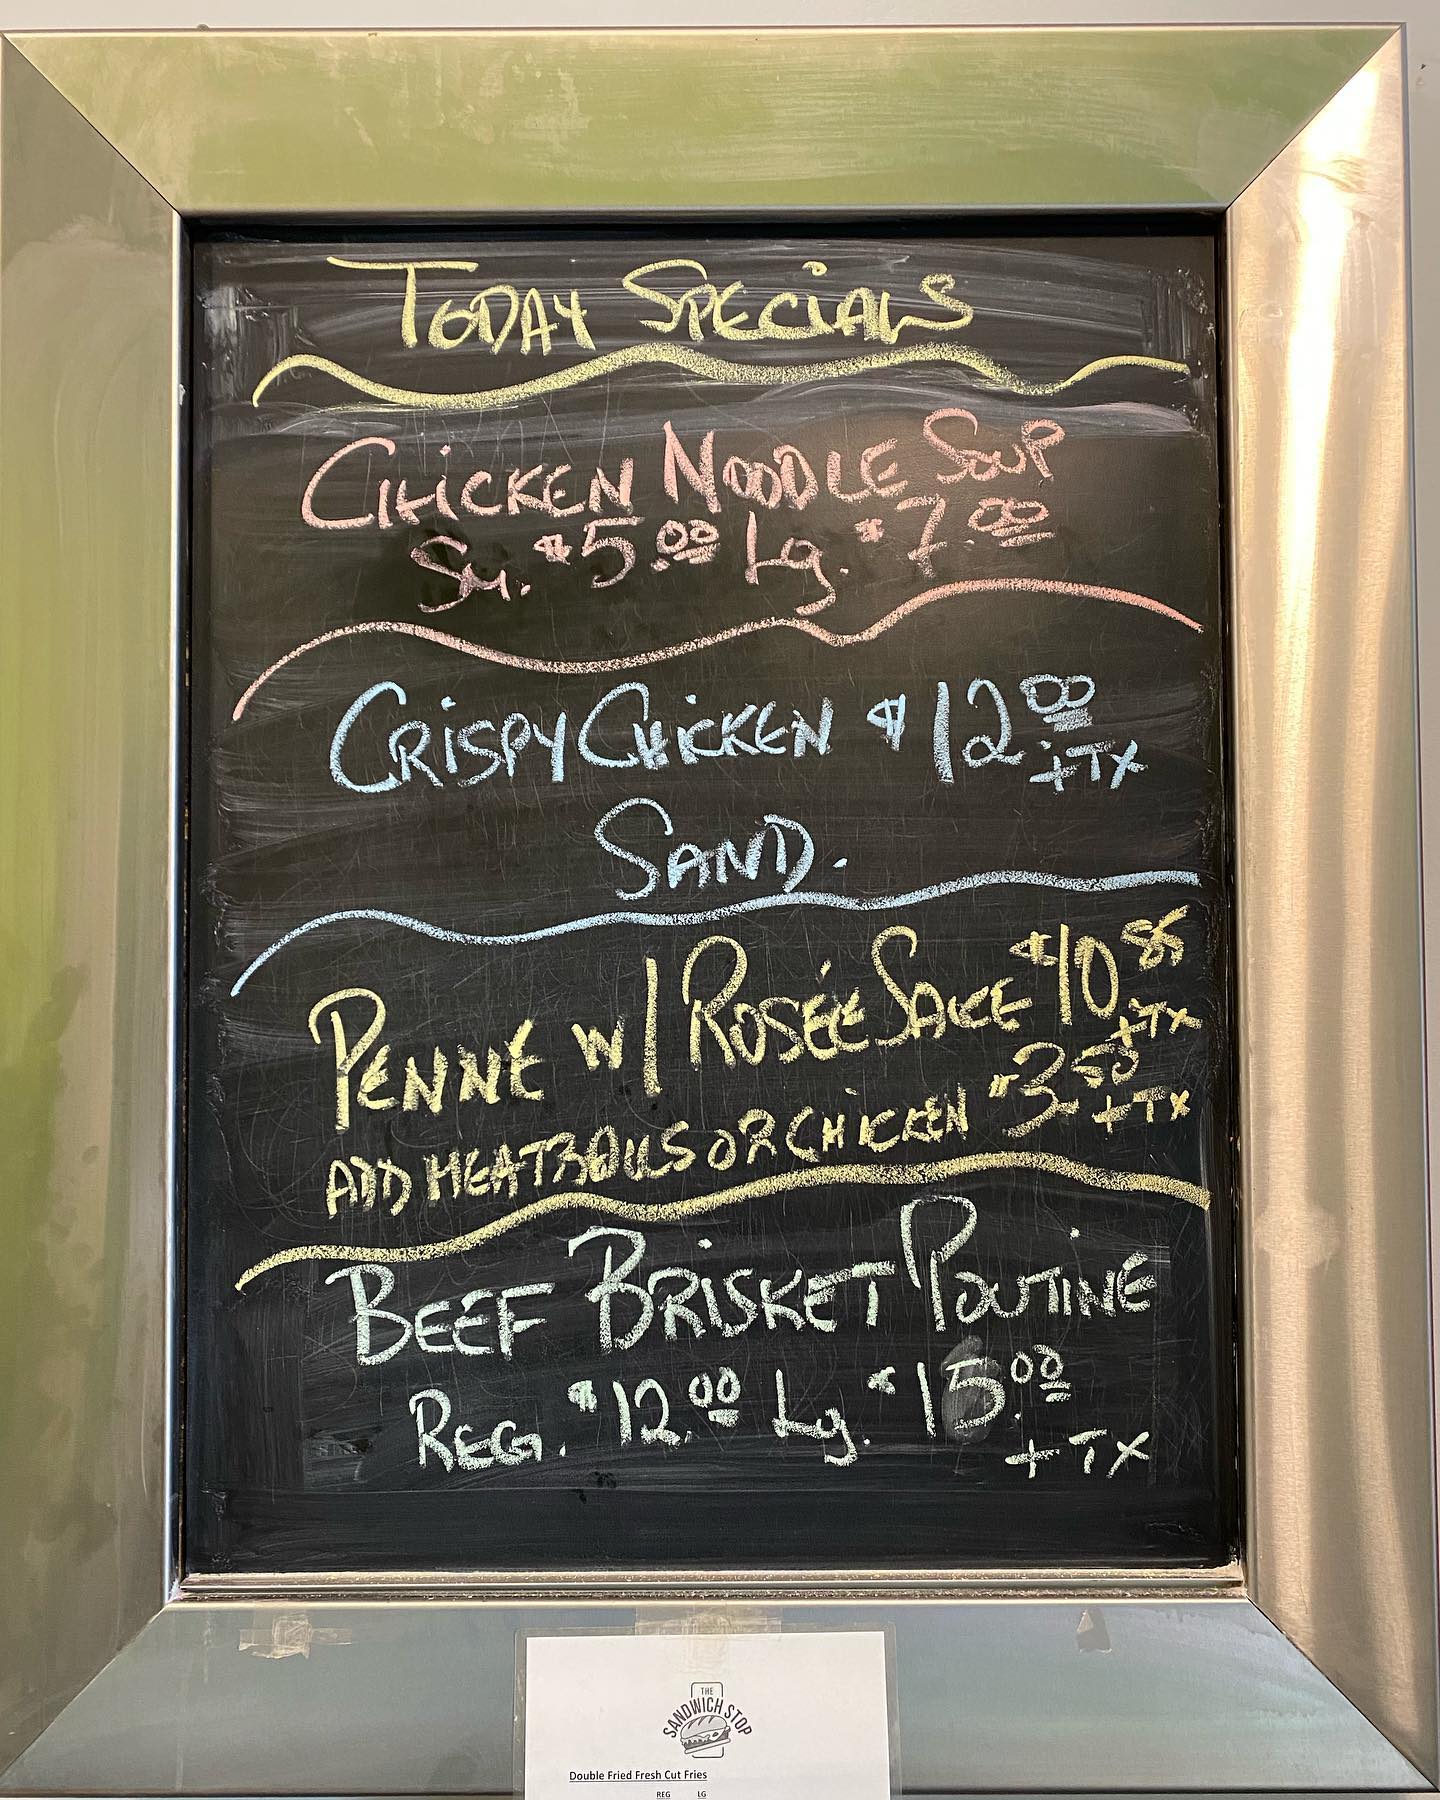 TODAY SPECIALS
CHICKEN NOODLE SOUP
SM. $5.00 Lg. $7.00
CRISPY CHICKEN $12.00
+TX
SAND.
PENNE W/ ROSÉE SAUCE $10.85
+TX
ADD MEATBALLS OR CHICKEN $3.50
+TX
BEEF BRISKET POUTINE
REG. $12.00 Lg. $15.00
+TX
THE
SANDWICH STOP
Double Fried Fresh Cut Fries
REG LG